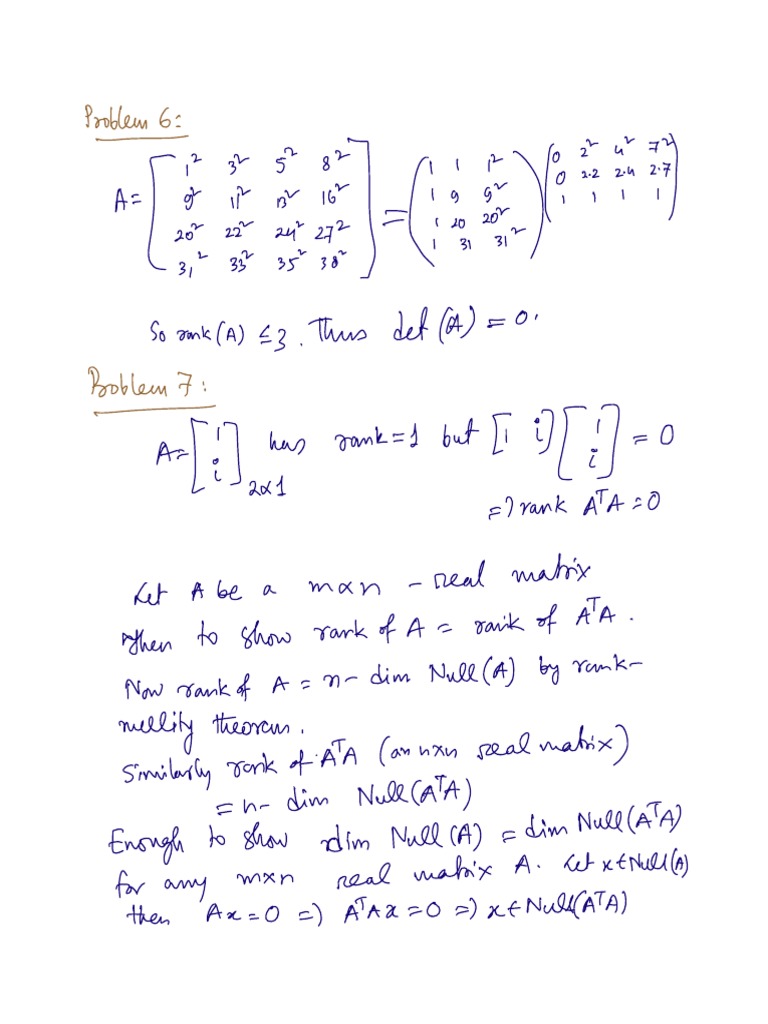 Problem 6:
A = [ 1² 3² 5² 8² ; 9² 11² 13² 16² ; 20² 22² 24² 27² ; 31² 33² 35² 38² ] = ( 1 1 1² ; 1 9 9² ; 1 20 20² ; 1 31 31² ) ( 0 2² 4² 7² ; 0 2·2 2·4 2·7 ; 1 1 1 1 )
So rank(A) ≤ 3. Thus det(A) = 0.
Problem 7:
A = [ 1 ; i ] 2×1 has rank=1 but [1 i] [ 1 ; i ] = 0
=> rank AᵀA = 0
Let A be a m×n - real matrix
Then to show rank of A = rank of AᵀA.
Now rank of A = n - dim Null(A) by rank-
nullity theorem.
Similarly rank of AᵀA (an n×n real matrix)
= n - dim Null(AᵀA)
Enough to show dim Null(A) = dim Null(AᵀA)
for any m×n real matrix A. Let x∈Null(A)
then Ax=0 => AᵀAx=0 => x∈Null(AᵀA)